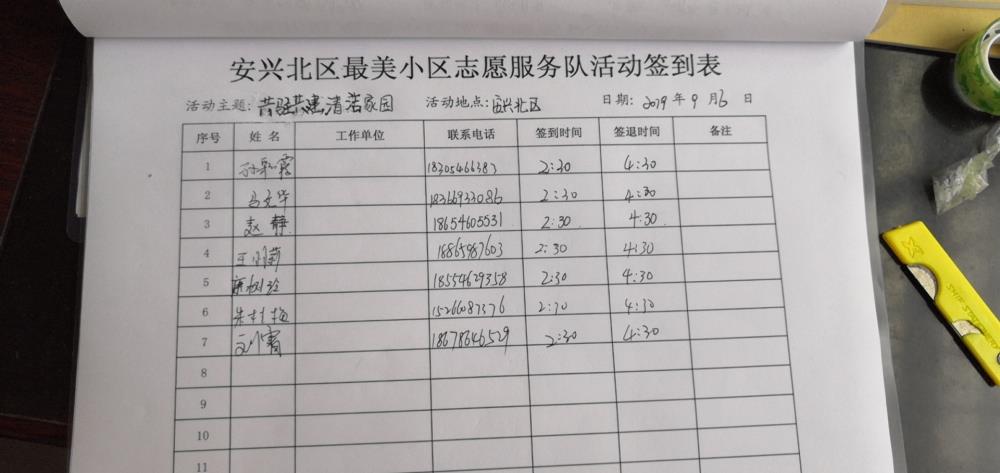 安兴北区最美小区志愿服务队活动签到表
活动主题: 共驻共建清洁家园 活动地点: 安兴北区 日期: 2019 年 9 月 6 日
序号 姓名 工作单位 联系电话 签到时间 签退时间 备注
1 孙彩霞 18305466383 2:30 4:30
2 马文华 18366933086 2:30 4:30
3 赵静 18654605531 2:30 4:30
4 18865987603 2:30 4:30
5 18554629358 2:30 4:30
6 15266087376 2:30 4:30
7 18678646529 2:30 4:30
8
9
10
11